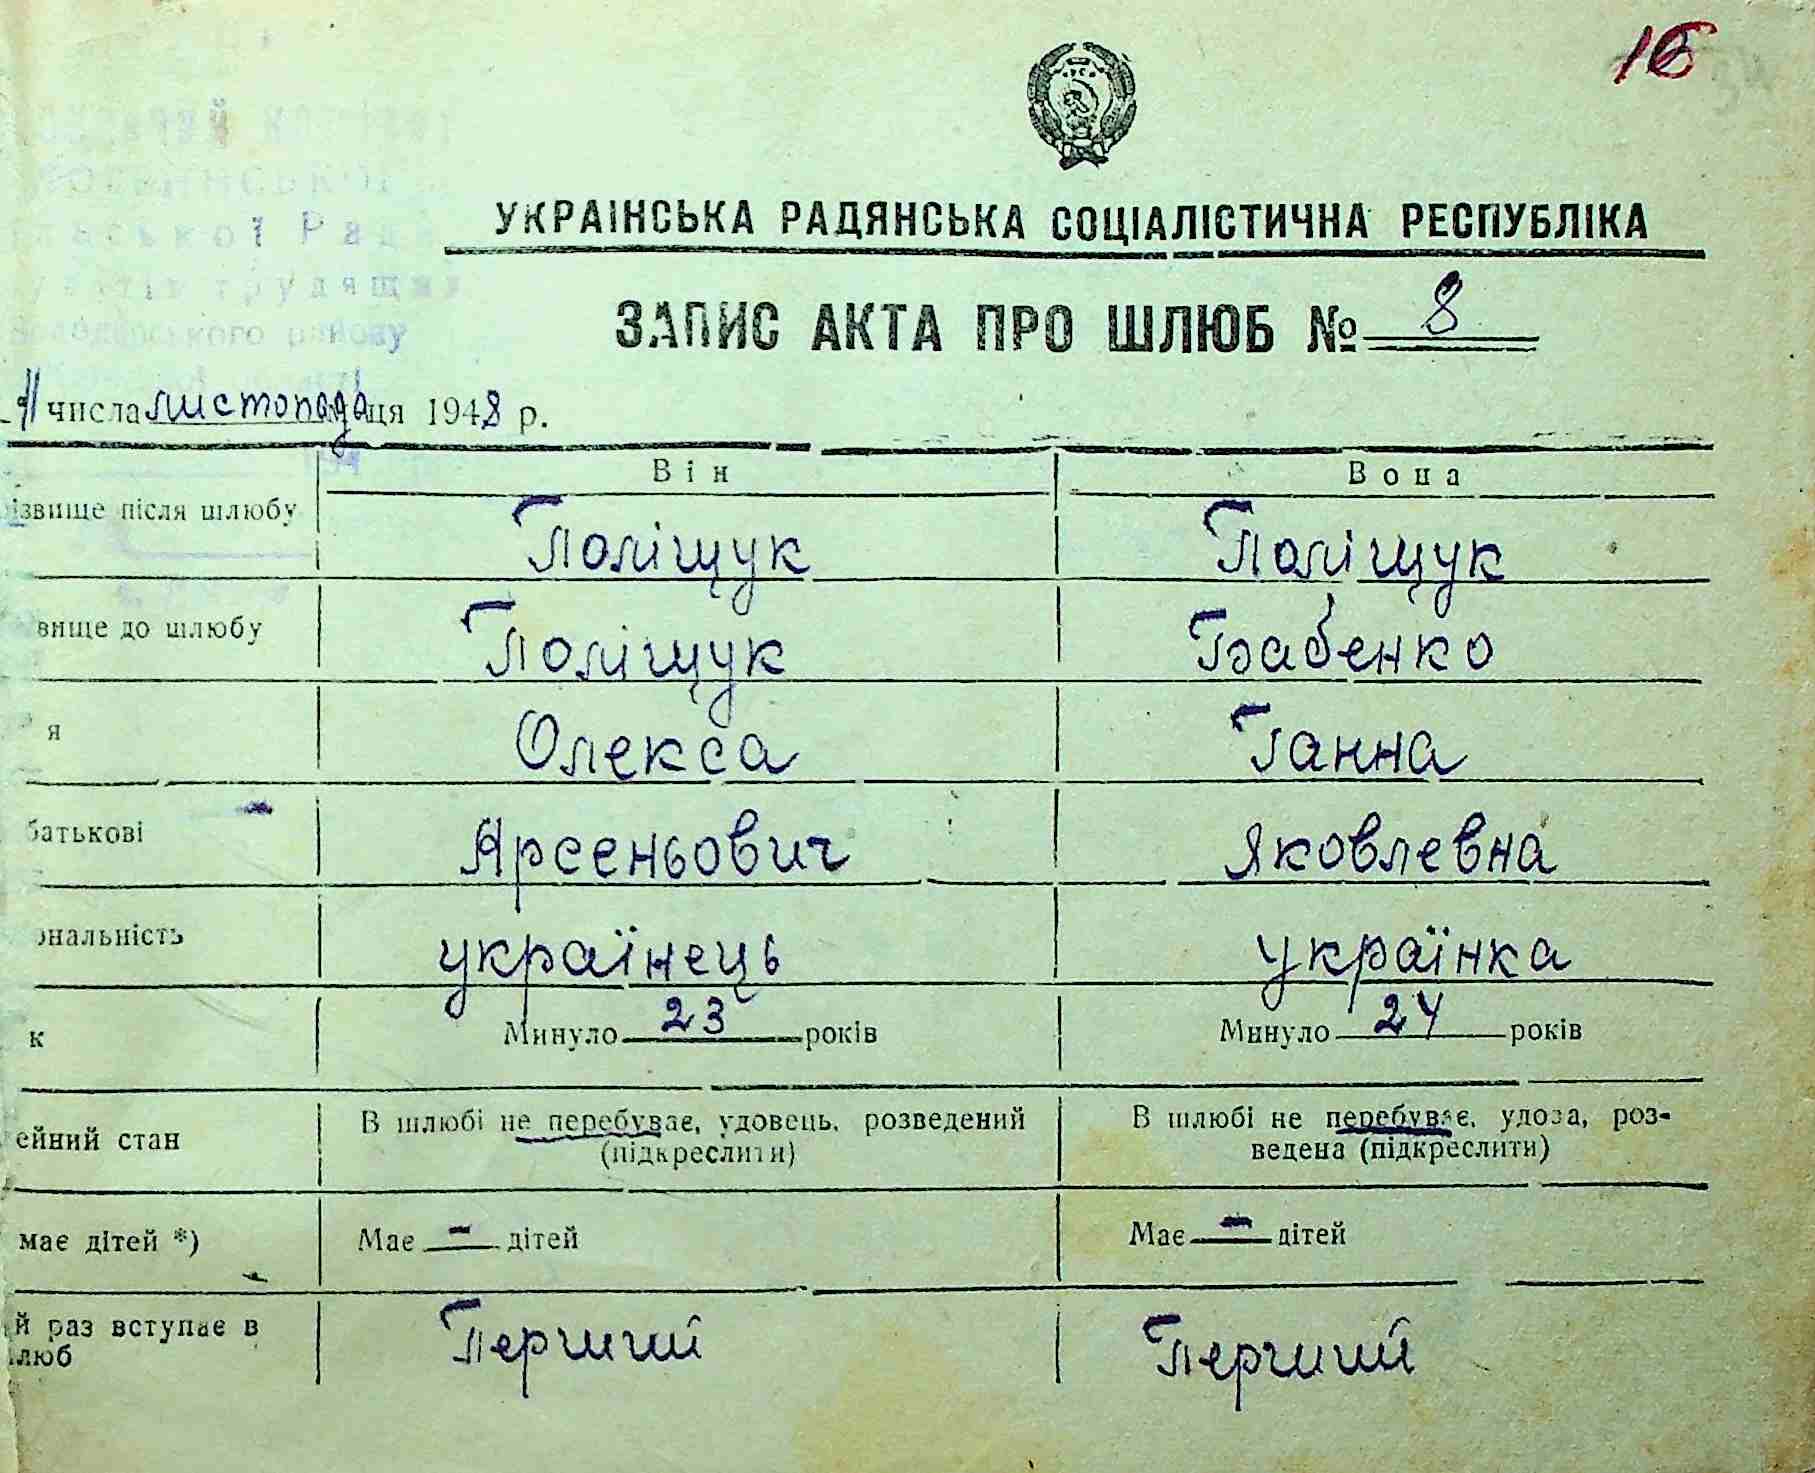 16
УКРАЇНСЬКА РАДЯНСЬКА СОЦІАЛІСТИЧНА РЕСПУБЛІКА
ЗАПИС АКТА ПРО ШЛЮБ № 8
трудящих
району
11 числа листопада ця 1948 р.
Він Вона
ізвище після шлюбу Поліщук Поліщук
вище до шлюбу Поліщук Бабенко
я Олекса Ганна
батькові Арсеньович Яковлевна
ональність українець українка
к Минуло 23 років Минуло 24 років
ейний стан В шлюбі не перебуває, удовець, розведений В шлюбі не перебуває, удова, роз-
(підкреслити) ведена (підкреслити)
має дітей *) Має - дітей Має - дітей
й раз вступає в Перший Перший
люб